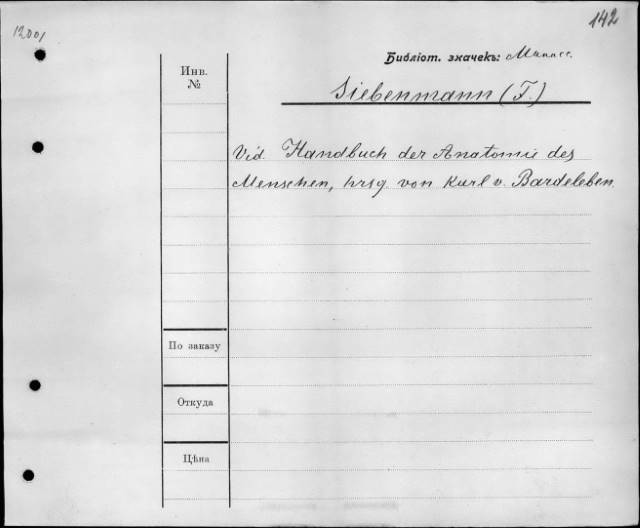 12001
142
Библіот. значекъ:
Инв.
№
Siebenmann (F.)
Vid. Handbuch der Anatomie des
Menschen, hrsg. von Karl v. Bardeleben.
По заказу
Откуда
Цѣна